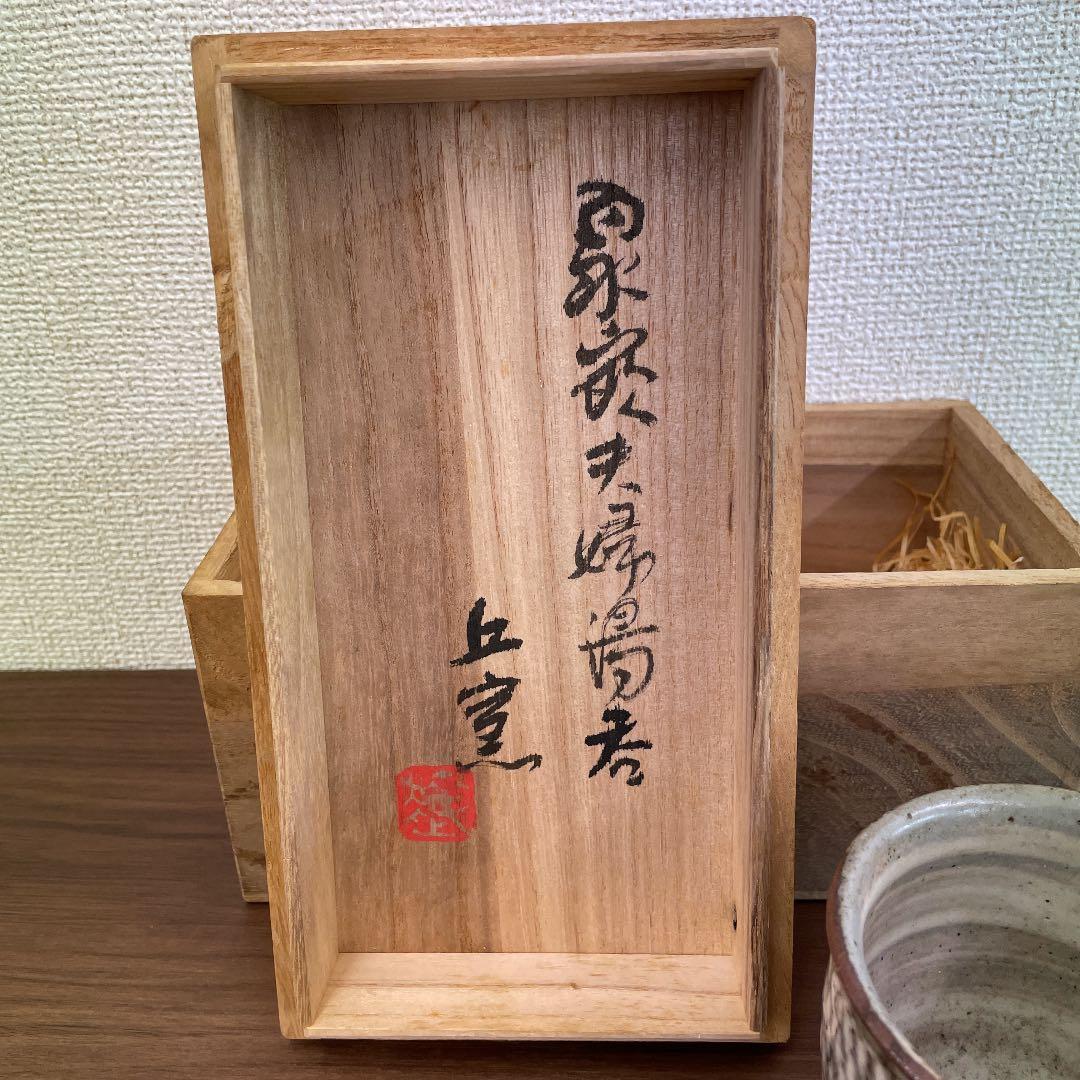 象嵌夫婦湯呑
丘窯